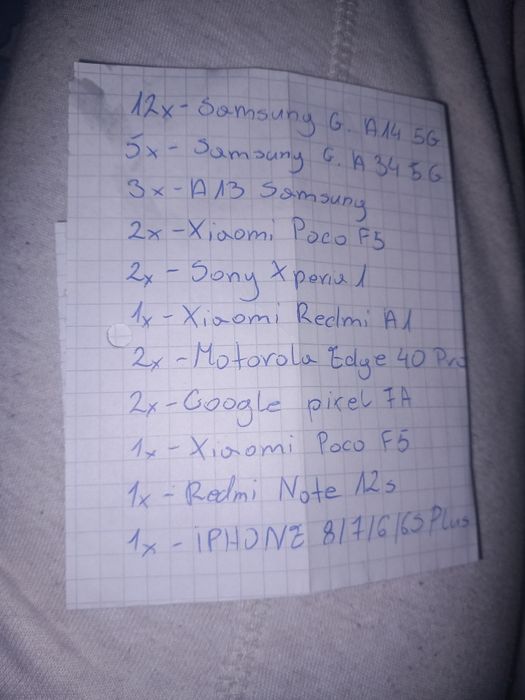 12x - Samsung G. A14 5G
5x - Samsung G. A34 5G
3x - A13 Samsung
2x - Xiaomi Poco F5
2x - Sony Xperia 1
1x - Xiaomi Redmi A1
2x - Motorola Edge 40 Pro
2x - Google pixel 7A
1x - Xiaomi Poco F5
1x - Redmi Note 12s
1x - iPHONE 8/7/6/6S Plus